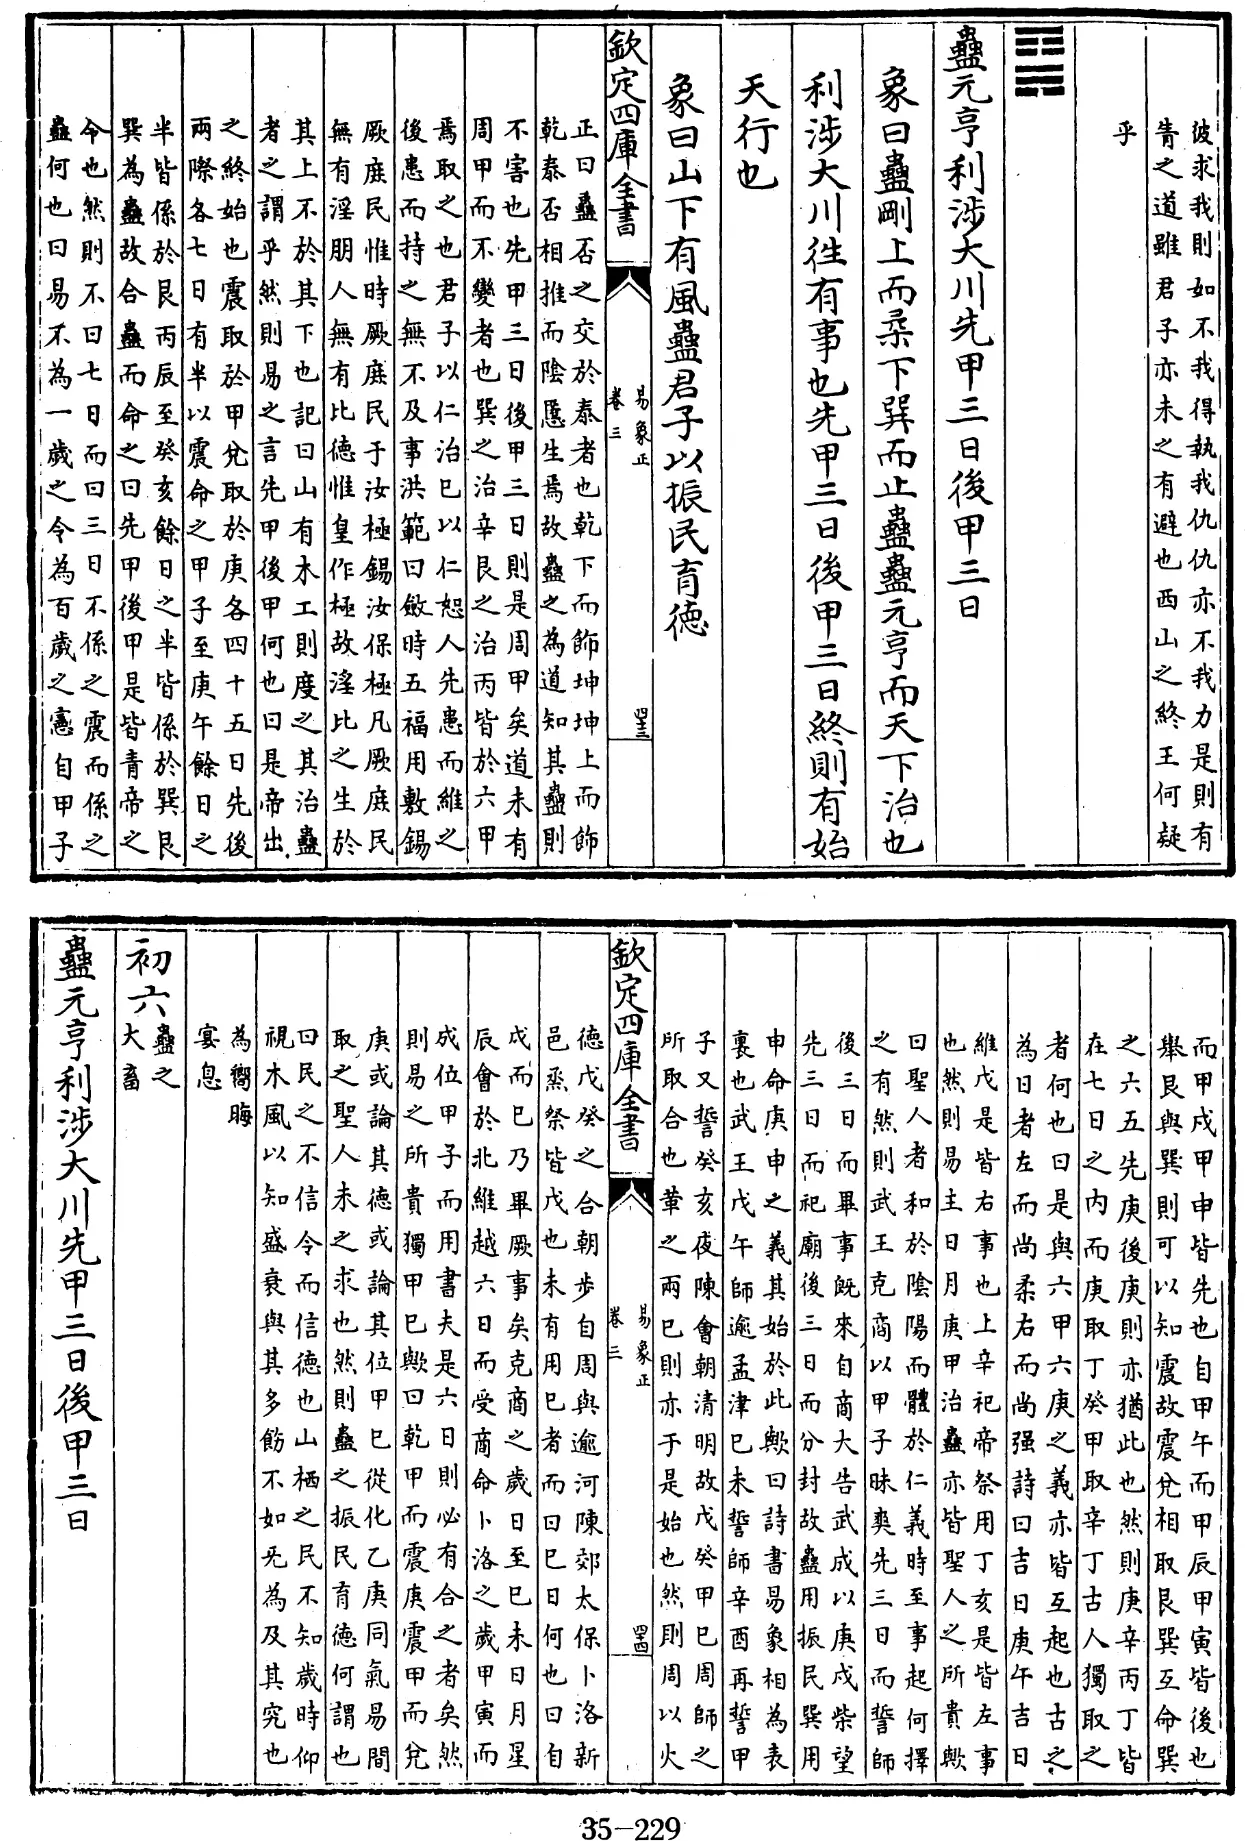 彼求我則如不我得執我仇仇亦不我力是則有
青之道雖君子亦未之有避也西山之終王何疑
乎
䷑
蠱元亨利涉大川先甲三日後甲三日
彖曰蠱剛上而柔下巽而止蠱蠱元亨而天下治也
利涉大川往有事也先甲三日後甲三日終則有始
天行也
象曰山下有風蠱君子以振民育德
欽定四庫全書
易象正
卷三
四十三
正曰蠱否之交於泰者也乾下而飾坤坤上而飾
乾泰否相推而陰慝生焉故蠱之為道知其蠱則
不害也先甲三日後甲三日則是周甲矣道未有
周甲而不變者也巽之治辛艮之治丙皆於六甲
焉取之也君子以仁治已以仁恕人先患而維之
後患而持之無不及事洪範曰斂時五福用敷錫
厥庶民惟時厥庶民于汝極錫汝保極凡厥庶民
無有淫朋人無有比德惟皇作極故淫比之生於
其上不於其下也記曰山有木工則度之其治蠱
者之謂乎然則易之言先甲後甲何也曰是帝出
之終始也震取於甲兌取於庚各四十五日先後
兩際各七日有半以震命之甲子至庚午餘日之
半皆係於艮丙辰至癸亥餘日之半皆係於巽艮
巽為蠱故合蠱而命之曰先甲後甲是皆青帝之
令也然則不曰七日而曰三日不係之震而係之
蠱何也曰易不為一歲之令為百歲之憲自甲子
而甲戌甲申皆先也自甲午而甲辰甲寅皆後也
舉艮與巽則可以知震故震兌相取艮巽互命巽
之六五先庚後庚則亦猶此也然則庚辛丙丁皆
在七日之內而庚取丁癸甲取辛丁古人獨取之
者何也曰是與六甲六庚之義亦皆互起也古之
為日者左而尚柔右而尚强詩曰吉日庚午吉日
維戊是皆右事也上辛祀帝祭用丁亥是皆左事
也然則易主日月庚甲治蠱亦皆聖人之所貴歟
曰聖人者和於陰陽而體於仁義時至事起何擇
之有然則武王克商以甲子昧爽先三日而誓師
後三日而畢事旣來自商大告武成以庚戌柴望
先三日而祀廟後三日而分封故蠱用振民巽用
申命庚申之義其始於此歟曰詩書易象相為表
裏也武王戊午師逾孟津巳未誓師辛酉再誓甲
子又誓癸亥夜陳會朝清明故戊癸甲巳周師之
所取合也革之兩巳則亦于是始也然則周以火
欽定四庫全書
易象正
卷三
四十四
德戊癸之合朝步自周與逾河陳郊太保卜洛新
邑烝祭皆戊也未有用巳者而曰巳日何也曰自
戊而巳乃畢厥事矣克商之歲日至巳未日月星
辰會於北維越六日而受商命卜洛之歲甲寅而
成位甲子而用書夫是六日則必有合之者矣然
則易之所貴獨甲巳歟曰乾甲而震庚震甲而兌
庚或論其德或論其位甲巳從化乙庚同氣易間
取之聖人未之求也然則蠱之振民育德何謂也
曰民之不信令而信德也山栖之民不知歲時仰
視木風以知盛衰與其多飭不如旡為及其究也
為嚮晦
宴息
初六
蠱之
大畜
蠱元亨利涉大川先甲三日後甲三日
35-229